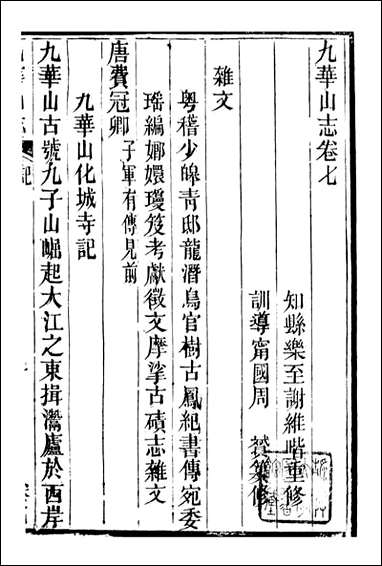 九華山志卷七
知縣樂至謝維喈重修
訓導甯國周 贇纂修
雜文
粵稽少皡青邸龍潛鳥官樹古鳳紀書傳宛委
瑤編嫏嬛瓊笈考獻徵文摩挲古磧志雜文
唐費冠卿 子軍有傳見前
九華山化城寺記
九華山古號九子山崛起大江之東揖潛廬於西岸